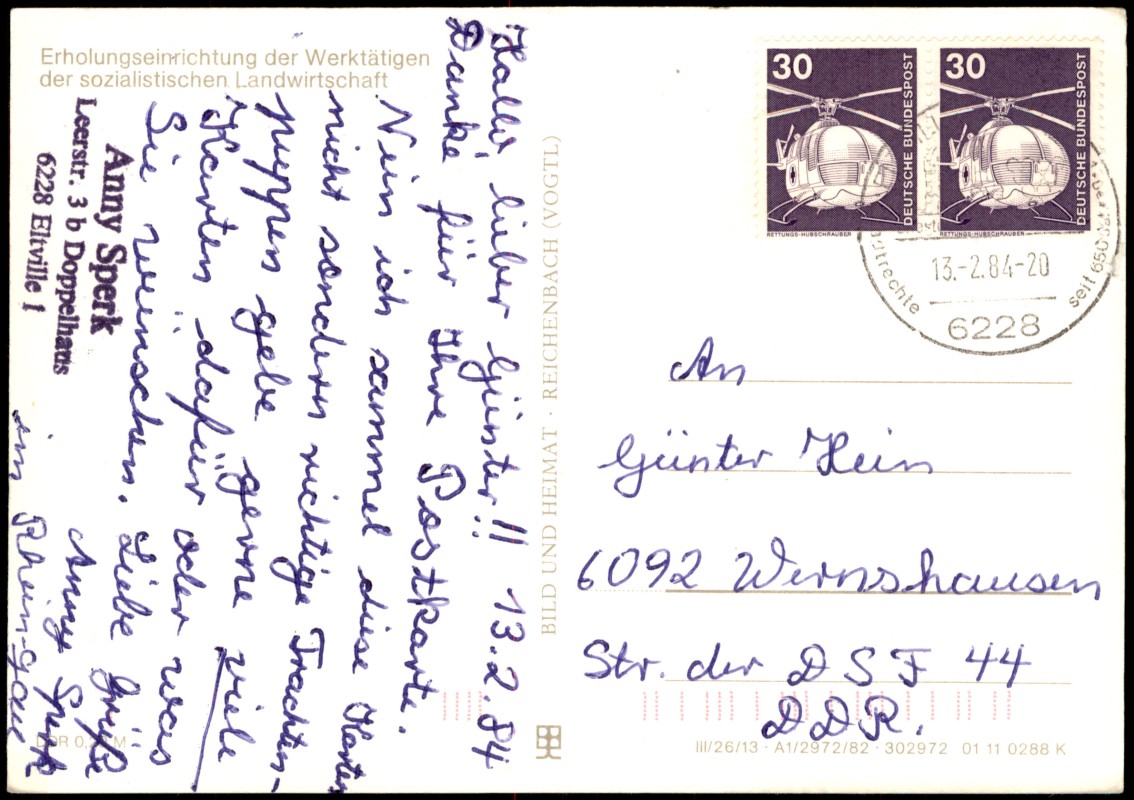 Erholungseinrichtung der Werktätigen
der sozialistischen Landwirtschaft
Hallo, lieber Günter!! 13.2.84
Danke für Ihre Postkarte.
Nein ich sammel diese Karten
nicht sondern richtige Trachten-
puppen gebe gerne viele
Karten dafür oder was
Sie wünschen. Liebe Grüße
Anny Sperk
im Rhein-gau
Anny Sperk
Leerstr. 3 b Doppelhaus
6228 Eltville 1
DDR 0,20 M
BILD UND HEIMAT · REICHENBACH (VOGTL)
30
DEUTSCHE BUNDESPOST
RETTUNGS-HUBSCHRAUBER
30
DEUTSCHE BUNDESPOST
RETTUNGS-HUBSCHRAUBER
13.-2.84-20
6228
seit 650
An
Günter Hein
6092 Wernshausen
Str. der DSF 44
DDR.
III/26/13 · A1/2972/82 · 302972 01 11 0288 K